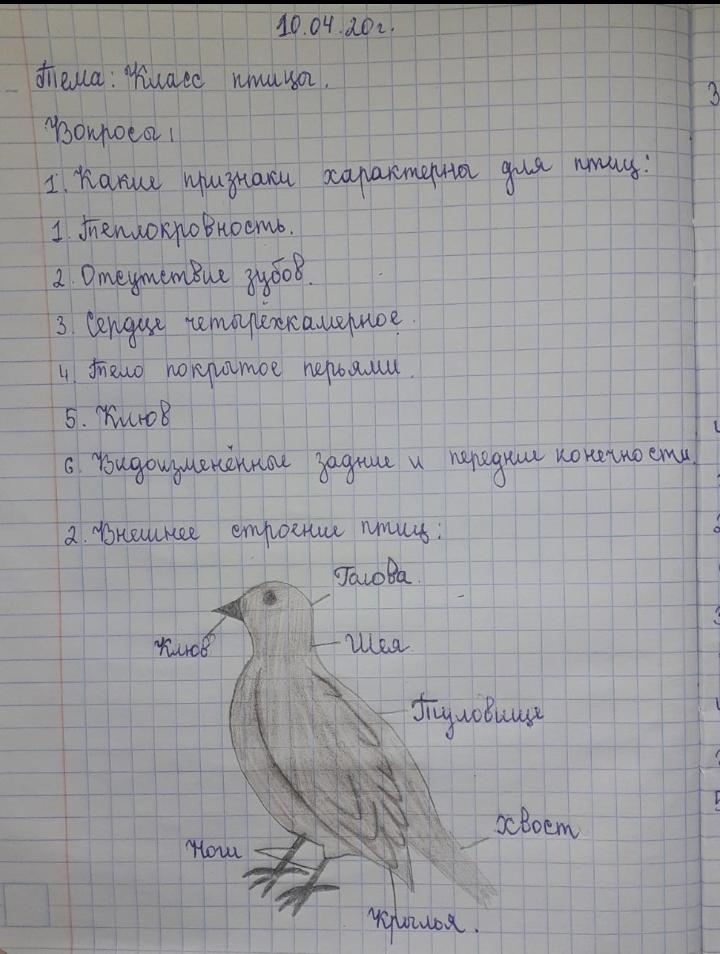 10.04.20г.
Тема: Класс птицы.
Вопросы:
1. Какие признаки характерны для птиц:
1. Теплокровность.
2. Отсутствие зубов.
3. Сердце четырёхкамерное.
4. Тело покрытое перьями.
5. Клюв
6. Видоизменённые задние и передние конечности.
2. Внешнее строение птиц:
Голова.
Клюв
Шея
Туловище
Хвост
Ноги
Крылья.